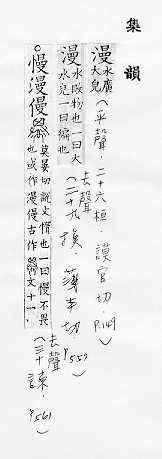 集韻
漫 水廣大皃
(平聲．二十六桓．謨官切．P.149)
漫 水敗物也一曰大水皃一曰徧也
去聲
(二十九換．莫半切．P.557)
○慢漫僈 莫晏切說文惰也一曰慢不畏也或作漫僈古作 文十一
去聲
(三十諫．P.561)